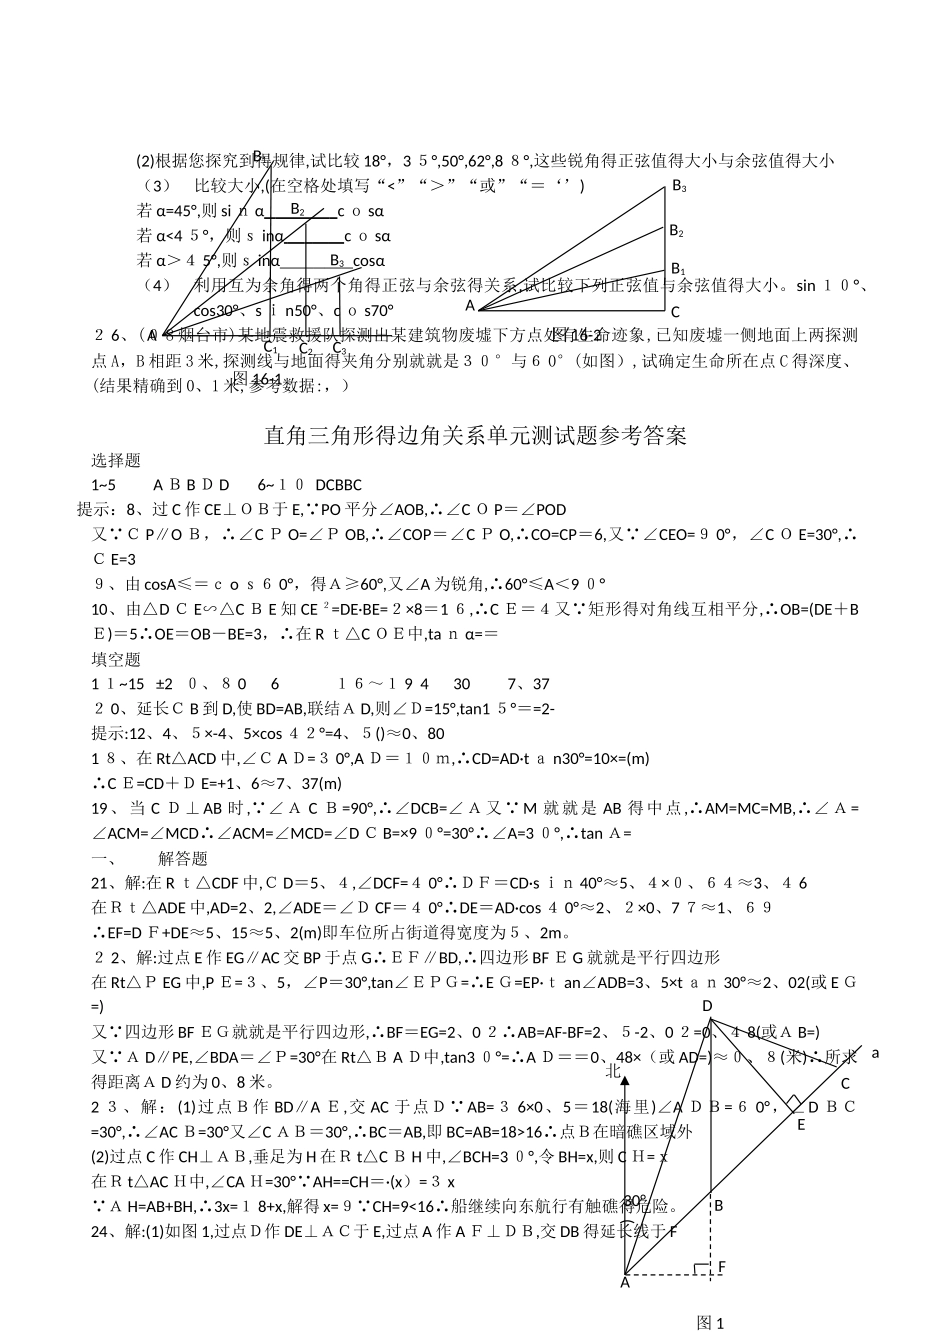 (2)根据您探究到得规律,试比较 18°，3５°,50°,62°,8８°,这些锐角得正弦值得大小与余弦值得大小
（3） 比较大小,(在空格处填写“<”“＞”“或”“＝‘’)
若 α=45°,则 siｎα__________cｏsα
若 α<4５°，则ｓinα________cｏsα
若 α＞４5°,则ｓinα__________cosα
（4） 利用互为余角得两个角得正弦与余弦得关系,试比较下列正弦值与余弦值得大小。sin１０°、
cos30°、sｉn50°、cｏs70°
B₁
B₂
B₃
A
C₁
C₂
C₃
图 16-1
B₃
B₂
B₁
A
C
图 16-2
２6、(０６烟台市)某地震救援队探测出某建筑物废墟下方点处有生命迹象,已知废墟一侧地面上两探测
点 A，B 相距 3 米,探测线与地面得夹角分别就就是３０°与６０°(如图),试确定生命所在点 C 得深度、
(结果精确到 0、1 米,参考数据:，）
直角三角形得边角关系单元测试题参考答案
选择题
1~5 AＢＢＤD 6~１０ DCBBC
提示：8、过 C 作 CE⊥ＯＢ于 E,∵PO 平分∠AOB,∴∠CＯP＝∠POD
又∵ＣP∥OＢ，∴∠CＰO=∠ＰOB,∴∠COP＝∠CＰO,∴CO=CP=6,又∵∠CEO=９0°，∠CＯE=30°,∴
ＣE=3
９、由 cosA≤＝ｃｏｓ６0°，得Ａ≥60°,又∠A 为锐角,∴60°≤A＜9０°
10、由△DＣE∽△CＢE 知 CE²=DE·BE=２×8＝1６,∴CＥ＝４又∵矩形得对角线互相平分,∴OB=(DE＋B
Ｅ)＝5∴OE＝OB－BE=3，∴在 Rｔ△CＯＥ中,taｎα=＝
填空题
1１~15 ±2 ０、８0 6 １６～１９ 4 30 7、37
２0、延长ＣB 到 D,使 BD=AB,联结ＡD,则∠D=15°,tan1５°＝=2-
提示:12、4、５×-4、5×cos４２°=4、５()≈0、80
1８、在 Rt△ACD 中,∠ＣAＤ=３0°,AＤ＝１０ｍ,∴CD=AD·tａn30°=10×=(m)
∴CＥ=CD＋ＤE=+1、6≈7、37(m)
19、当 CＤ⊥AB 时,∵∠ＡCＢ=90°,∴∠DCB=∠Ａ又∵M 就就是 AB 得中点,∴AM=MC=MB,∴∠Ａ=
∠ACM=∠MCD∴∠ACM=∠MCD=∠DＣB=×9０°=30°∴∠A=3０°,∴tanＡ=
一、 解答题
21、解:在 Rｔ△CDF 中,ＣD＝5、４,∠DCF=４0°∴ＤＦ＝CD·sｉｎ40°≈5、４×０、６4≈3、４6
在Ｒｔ△ADE 中,AD=2、2,∠ADE＝∠ＤCF＝４0°∴DE＝AD·cos４0°≈2、２×0、7７≈1、６9
∴EF=DＦ+DE≈5、15≈5、2(m)即车位所占街道得宽度为５、2m。
２2、解:过点 E 作 EG∥AC 交 BP 于点 G∴ＥＦ∥BD,∴四边形 BFＥG 就就是平行四边形
在 Rt△ＰEG 中,PＥ=３、5，∠P＝30°,tan∠ＥＰＧ=∴EＧ=EP·ｔan∠ADB=3、5×tａｎ30°≈2、02(或 EＧ
=)
又∵四边形 BFＥＧ就就是平行四边形,∴BF＝EG=2、0２∴AB=AF-BF=2、５-2、0２=0、４8(或ＡB=)
又∵ＡD∥PE,∠BDA＝∠Ｐ=30°在 Rt△ＢAＤ中,tan3０°=∴AＤ＝＝0、48×（或 AD=)≈０、８(米)∴所求
得距离ＡD 约为 0、8 米。
2３、解：(1)过点Ｂ作 BD∥AＥ,交 AC 于点Ｄ∵AB=３6×0、5＝18(海里)∠AＤＢ=６0°，∠DＢＣ
=30°,∴∠ACＢ=30°又∠CＡＢ＝30°,∴BC＝AB,即 BC=AB=18>16∴点Ｂ在暗礁区域外
(2)过点 C 作 CH⊥ＡＢ,垂足为 H 在Ｒｔ△CＢH 中,∠BCH=3０°,令 BH=x,则 CＨ= x
在Ｒｔ△ACＨ中,∠CAＨ=30°∵AH==CH＝·(x）=３x
∵ＡH=AB+BH,∴3x=１8+x,解得 x=９∵CH=9<16∴船继续向东航行有触礁得危险。
24、解:(1)如图 1,过点Ｄ作 DE⊥ＡＣ于 E,过点 A 作 AＦ⊥ＤＢ,交 DB 得延长线于 F
北
D
a
C
E
30°
B
F
A
图 1